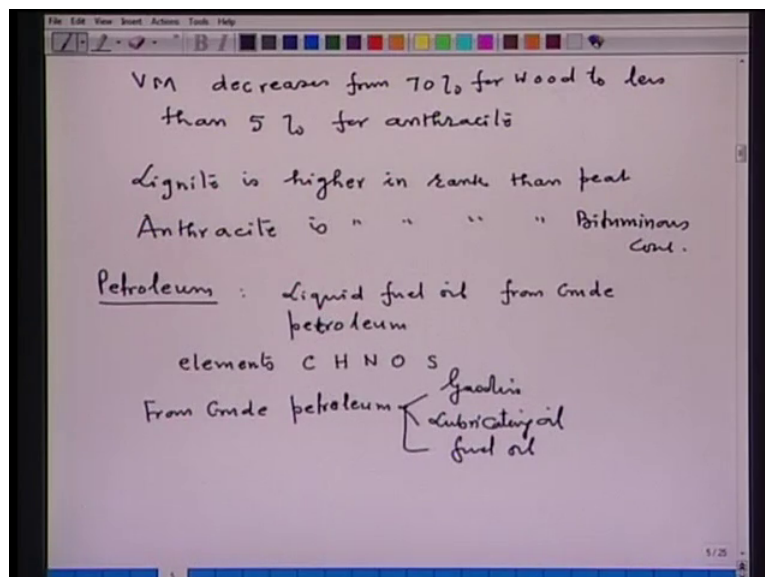 File Edit View Insert Actions Tools Help
VM decreases from 70% for wood to less
than 5% for anthracite
Lignite is higher in rank than peat
Anthracite is " " " " Bituminous
coal.
Petroleum : Liquid fuel oil from Crude
petroleum
elements C H N O S
Gasoline
From Crude petroleum Lubricating oil
fuel oil
5/25